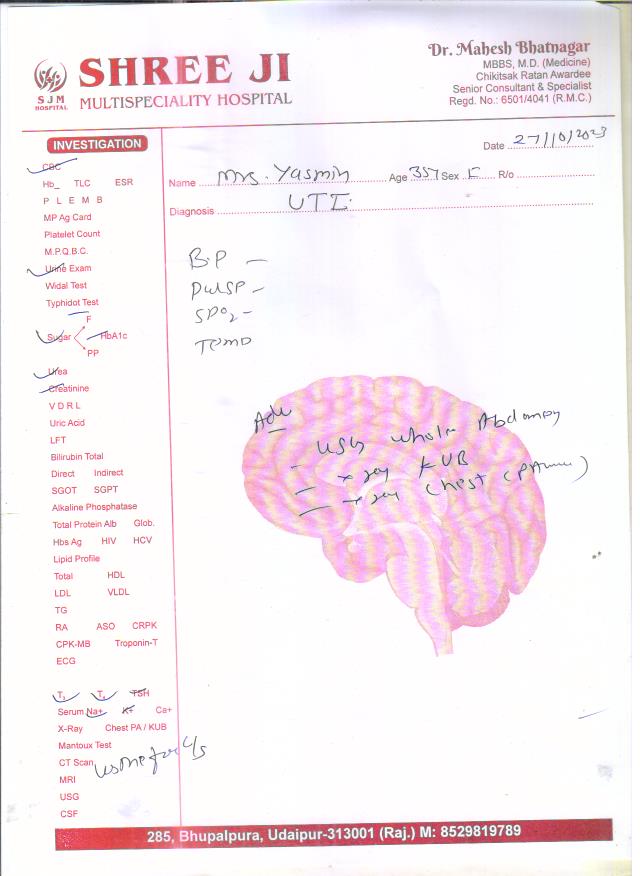 SJM
HOSPITAL
SHREE JI
MULTISPECIALITY HOSPITAL
Dr. Mahesh Bhatnagar
MBBS, M.D. (Medicine)
Chikitsak Ratan Awardee
Senior Consultant & Specialist
Regd. No.: 6501/4041 (R.M.C.)
Date 27/10/2023
Name Mrs. Yasmin Age 35Y Sex F R/o
Diagnosis UTI
INVESTIGATION
CBC
Hb_ TLC ESR
P L E M B
MP Ag Card
Platelet Count
M.P.Q.B.C.
Urine Exam
Widal Test
Typhidot Test
F
Sugar HbA1c
PP
Urea
Creatinine
V D R L
Uric Acid
LFT
Bilirubin Total
Direct Indirect
SGOT SGPT
Alkaline Phosphatase
Total Protein Alb Glob.
Hbs Ag HIV HCV
Lipid Profile
Total HDL
LDL VLDL
TG
RA ASO CRPK
CPK-MB Troponin-T
ECG
T3 T4 TSH
Serum Na+ K+ Ca+
X-Ray Chest PA / KUB
Mantoux Test
CT Scan
MRI
USG
CSF
urine for C/S
B.P -
Pulse -
SPO2 -
Temp
Adv
- USG whole Abdomen
- x-ray KUB
- x-ray chest
285, Bhupalpura, Udaipur-313001 (Raj.) M: 8529819789